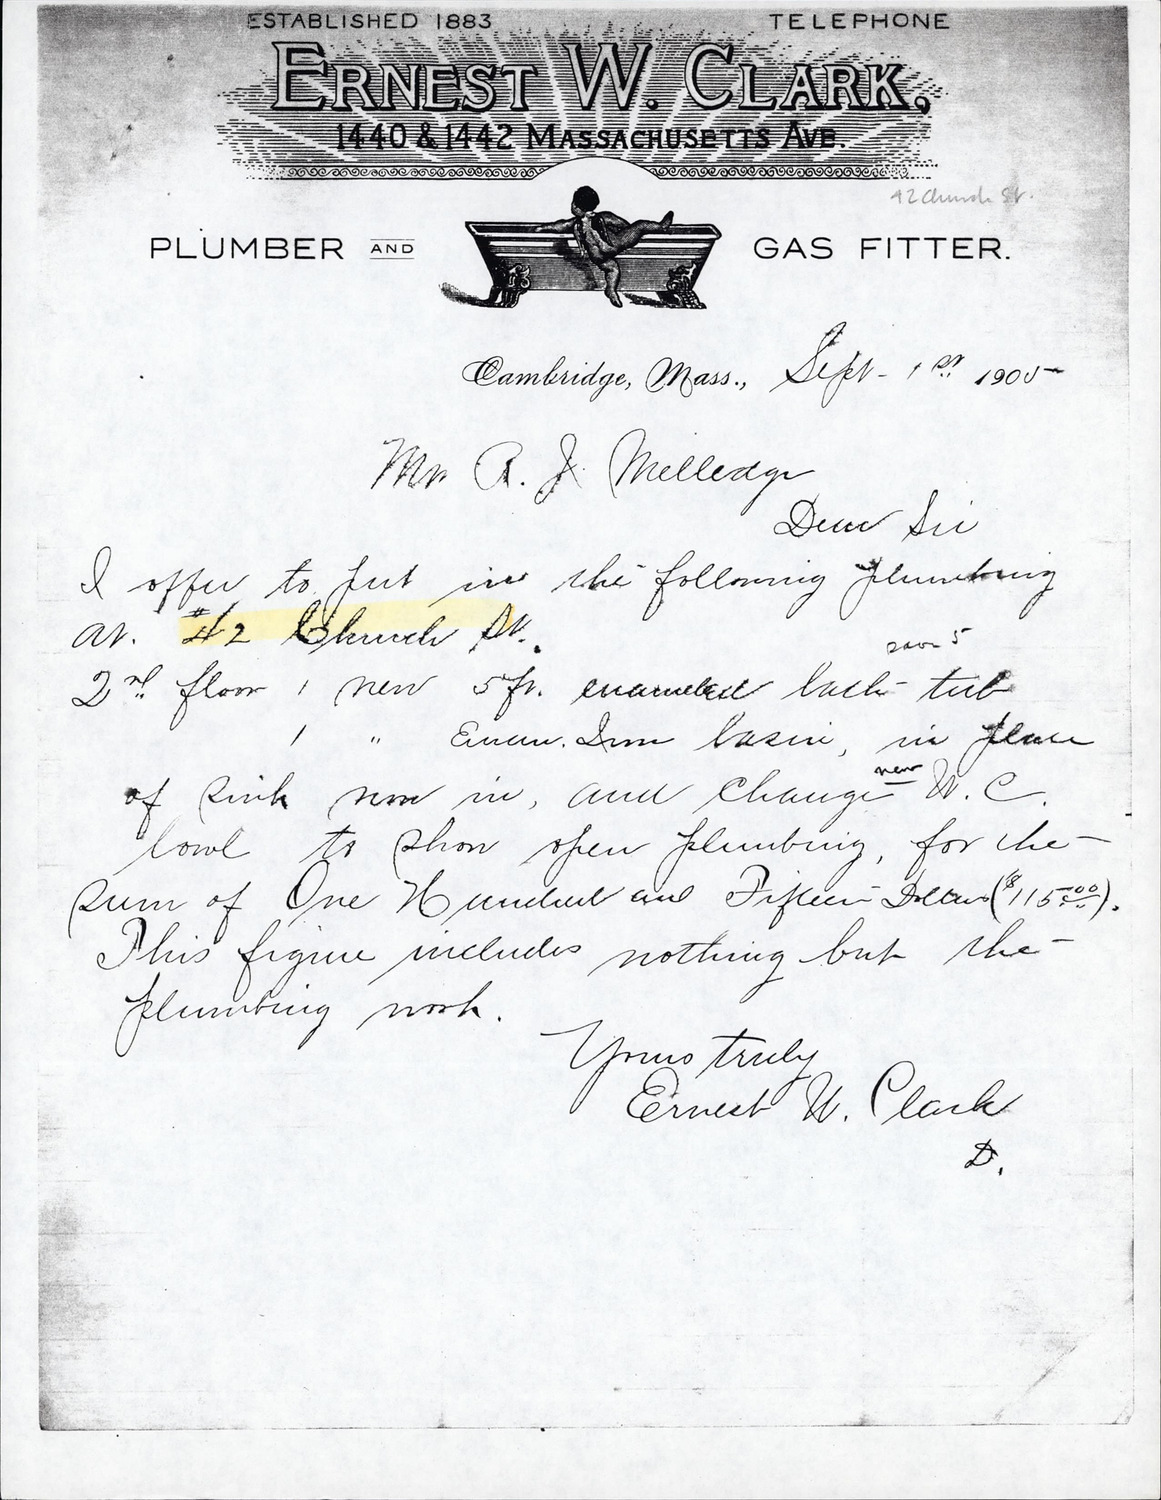 ESTABLISHED 1883 TELEPHONE
ERNEST W. CLARK,
1440 & 1442 MASSACHUSETTS AVE.
42 Church St.
PLUMBER AND GAS FITTER.
Cambridge, Mass., Sept - 1st 1905
Mr A. J. Melledge
Dear Sir
I offer to put in the following plumbing
at. #42 Church St.
5
2nd floor 1 new 5 ft. enameled bath tub
1 " Enam. Iron basin, in place
of sink now in, and change new W.C.
bowl to show open plumbing, for the
sum of One Hundred and Fifteen Dollars ($115.00).
This figure includes nothing but the
plumbing work.
Yours truly
Ernest W. Clark
D.